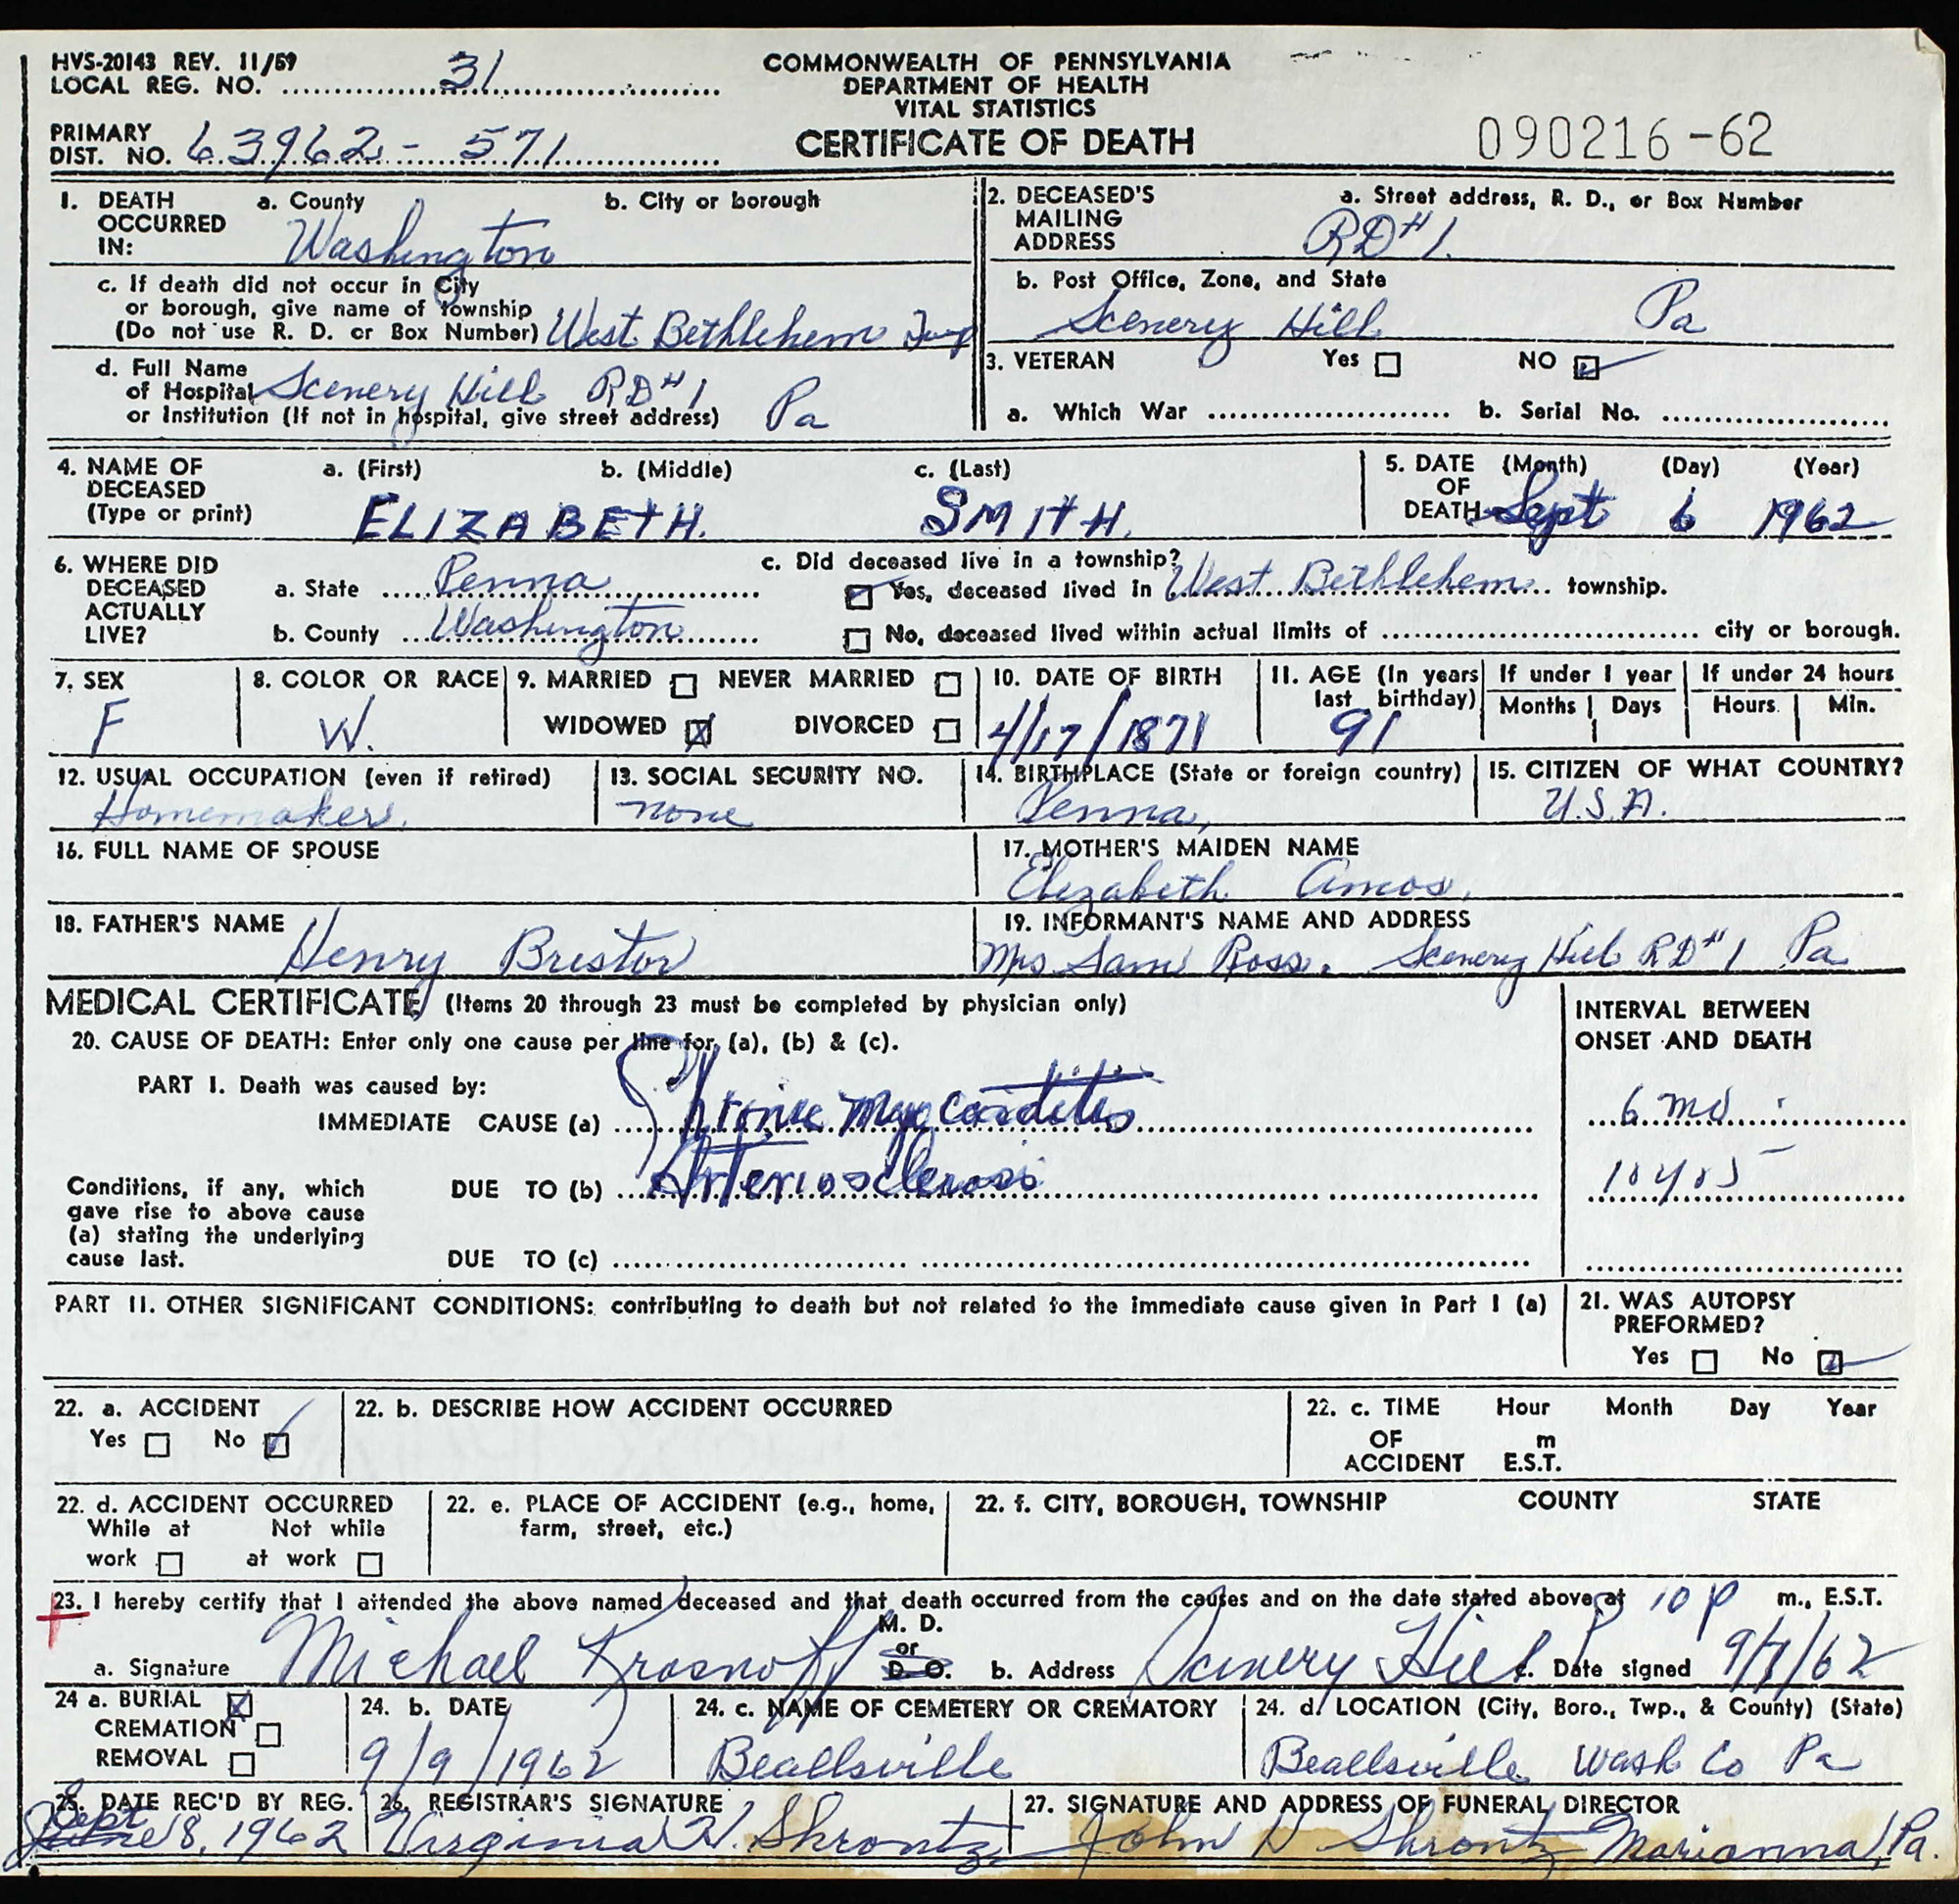 HVS-20143 REV. 11/59
LOCAL REG. NO. 31
COMMONWEALTH OF PENNSYLVANIA
DEPARTMENT OF HEALTH
VITAL STATISTICS
CERTIFICATE OF DEATH
PRIMARY
DIST. NO. 63962-571
090216-62
1. DEATH OCCURRED IN: a. County Washington b. City or borough
2. DECEASED'S MAILING ADDRESS a. Street address, R. D., or Box Number
RD#1.
c. If death did not occur in City
or borough, give name of township
(Do not use R. D. or Box Number) West Bethlehem Twp
b. Post Office, Zone, and State
Scenery Hill Pa
d. Full Name
of Hospital Scenery Hill RD#1
or Institution (If not in hospital, give street address) Pa
3. VETERAN Yes NO
a. Which War b. Serial No.
4. NAME OF DECEASED (Type or print) a. (First) b. (Middle) c. (Last)
ELIZABETH. SMITH.
5. DATE OF DEATH (Month) (Day) (Year)
Sept 6 1962
6. WHERE DID DECEASED ACTUALLY LIVE?
a. State Penna
b. County Washington
c. Did deceased live in a township?
Yes, deceased lived in West Bethlehem township.
No, deceased lived within actual limits of city or borough.
7. SEX
F
8. COLOR OR RACE
W.
9. MARRIED NEVER MARRIED
WIDOWED X DIVORCED
10. DATE OF BIRTH
4/17/1871
11. AGE (In years last birthday)
91
If under 1 year
Months Days
If under 24 hours
Hours Min.
12. USUAL OCCUPATION (even if retired)
Homemaker.
13. SOCIAL SECURITY NO.
none
14. BIRTHPLACE (State or foreign country)
Penna,
15. CITIZEN OF WHAT COUNTRY?
U.S.A.
16. FULL NAME OF SPOUSE
17. MOTHER'S MAIDEN NAME
Elizabeth Amos.
18. FATHER'S NAME
Henry Bristor
19. INFORMANT'S NAME AND ADDRESS
Mrs Sam Ross. Scenery Hill RD#1 Pa
MEDICAL CERTIFICATE (Items 20 through 23 must be completed by physician only)
INTERVAL BETWEEN
ONSET AND DEATH
20. CAUSE OF DEATH: Enter only one cause per line for (a), (b) & (c).
PART I. Death was caused by:
IMMEDIATE CAUSE (a) Chronic Myocarditis 6 mo
Conditions, if any, which
gave rise to above cause
(a) stating the underlying
cause last.
DUE TO (b) Arteriosclerosis 10 yrs
DUE TO (c)
PART II. OTHER SIGNIFICANT CONDITIONS: contributing to death but not related to the immediate cause given in Part I (a)
21. WAS AUTOPSY
PREFORMED?
Yes No
22. a. ACCIDENT
Yes No
22. b. DESCRIBE HOW ACCIDENT OCCURRED
22. c. TIME OF ACCIDENT Hour Month Day Year
m
E.S.T.
22. d. ACCIDENT OCCURRED
While at work Not while at work
22. e. PLACE OF ACCIDENT (e.g., home,
farm, street, etc.)
22. f. CITY, BOROUGH, TOWNSHIP COUNTY STATE
23. I hereby certify that I attended the above named deceased and that death occurred from the causes and on the date stated above at 10 p m., E.S.T.
a. Signature Michael Krosnoff M. D. or D. O. b. Address Scenery Hill c. Date signed 9/7/62
24 a. BURIAL X
CREMATION
REMOVAL
24. b. DATE
9/9/1962
24. c. NAME OF CEMETERY OR CREMATORY
Beallsville
24. d. LOCATION (City, Boro., Twp., & County) (State)
Beallsville Wash Co Pa
25. DATE REC'D BY REG.
Sept 8, 1962
26. REGISTRAR'S SIGNATURE
Virginia H. Shrontz
27. SIGNATURE AND ADDRESS OF FUNERAL DIRECTOR
John H Shrontz Marianna, Pa.